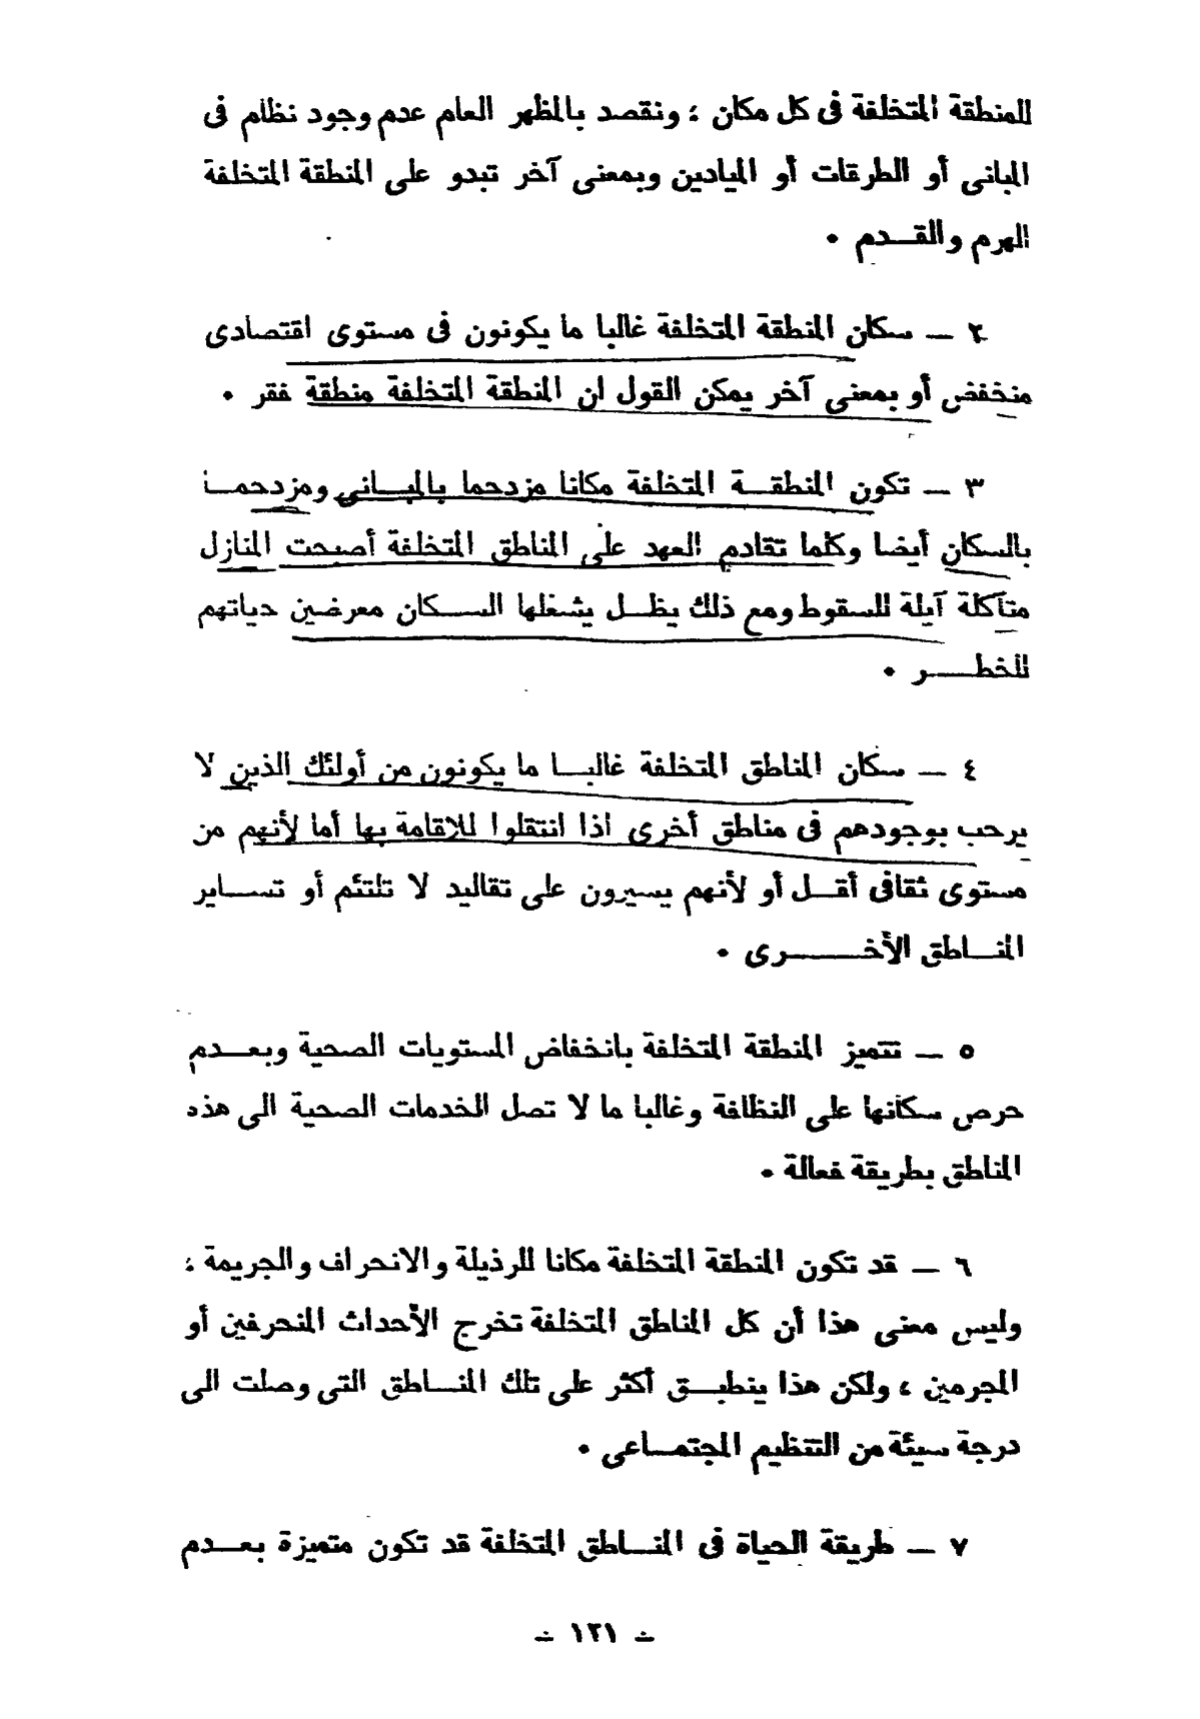 للمنطقة المتخلفة فى كل مكان ؛ ونقصد بالمظهر العام عدم وجود نظام فى
المبانى أو الطرقات أو الميادين وبمعنى آخر تبدو على المنطقة المتخلفة
الهرم والقــدم •
٢ — سكان المنطقة المتخلفة غالبا ما يكونون فى مستوى اقتصادى
منخفض أو بمعنى آخر يمكن القول ان المنطقة المتخلفة منطقة فقر •
٣ — تكون المنطقــة المتخلفة مكانا مزدحما بالمبــانى ومزدحمــا
بالسكان أيضا وكلما تقادم العهد على المناطق المتخلفة أصبحت المنازل
متآكلة آيلة للسقوط ومع ذلك يظــل يشغلها الســكان معرضين حياتهم
للخطــــر •
٤ — سكان المناطق المتخلفة غالبــا ما يكونون من أولئك الذين لا
يرحب بوجودهم فى مناطق أخرى اذا انتقلوا للاقامة بها أما لأنهم من
مستوى ثقافى أقــل أو لأنهم يسيرون على تقاليد لا تلتئم أو تســـاير
المنــاطق الأخـــــرى •
٥ — تتميز المنطقة المتخلفة بانخفاض المستويات الصحية وبعــدم
حرص سكانها على النظافة وغالبا ما لا تصل الخدمات الصحية الى هذه
المناطق بطريقة فعالة •
٦ — قد تكون المنطقة المتخلفة مكانا للرذيلة والانحراف والجريمة ؛
وليس معنى هذا أن كل المناطق المتخلفة تخرج الأحداث المنحرفين أو
المجرمين ، ولكن هذا ينطبــق أكثر على تلك المنــاطق التى وصلت الى
درجة سيئة من التنظيم المجتمــاعى •
٧ — طريقة الحياة فى المنــاطق المتخلفة قد تكون متميزة بعــدم
— ١٢١ —